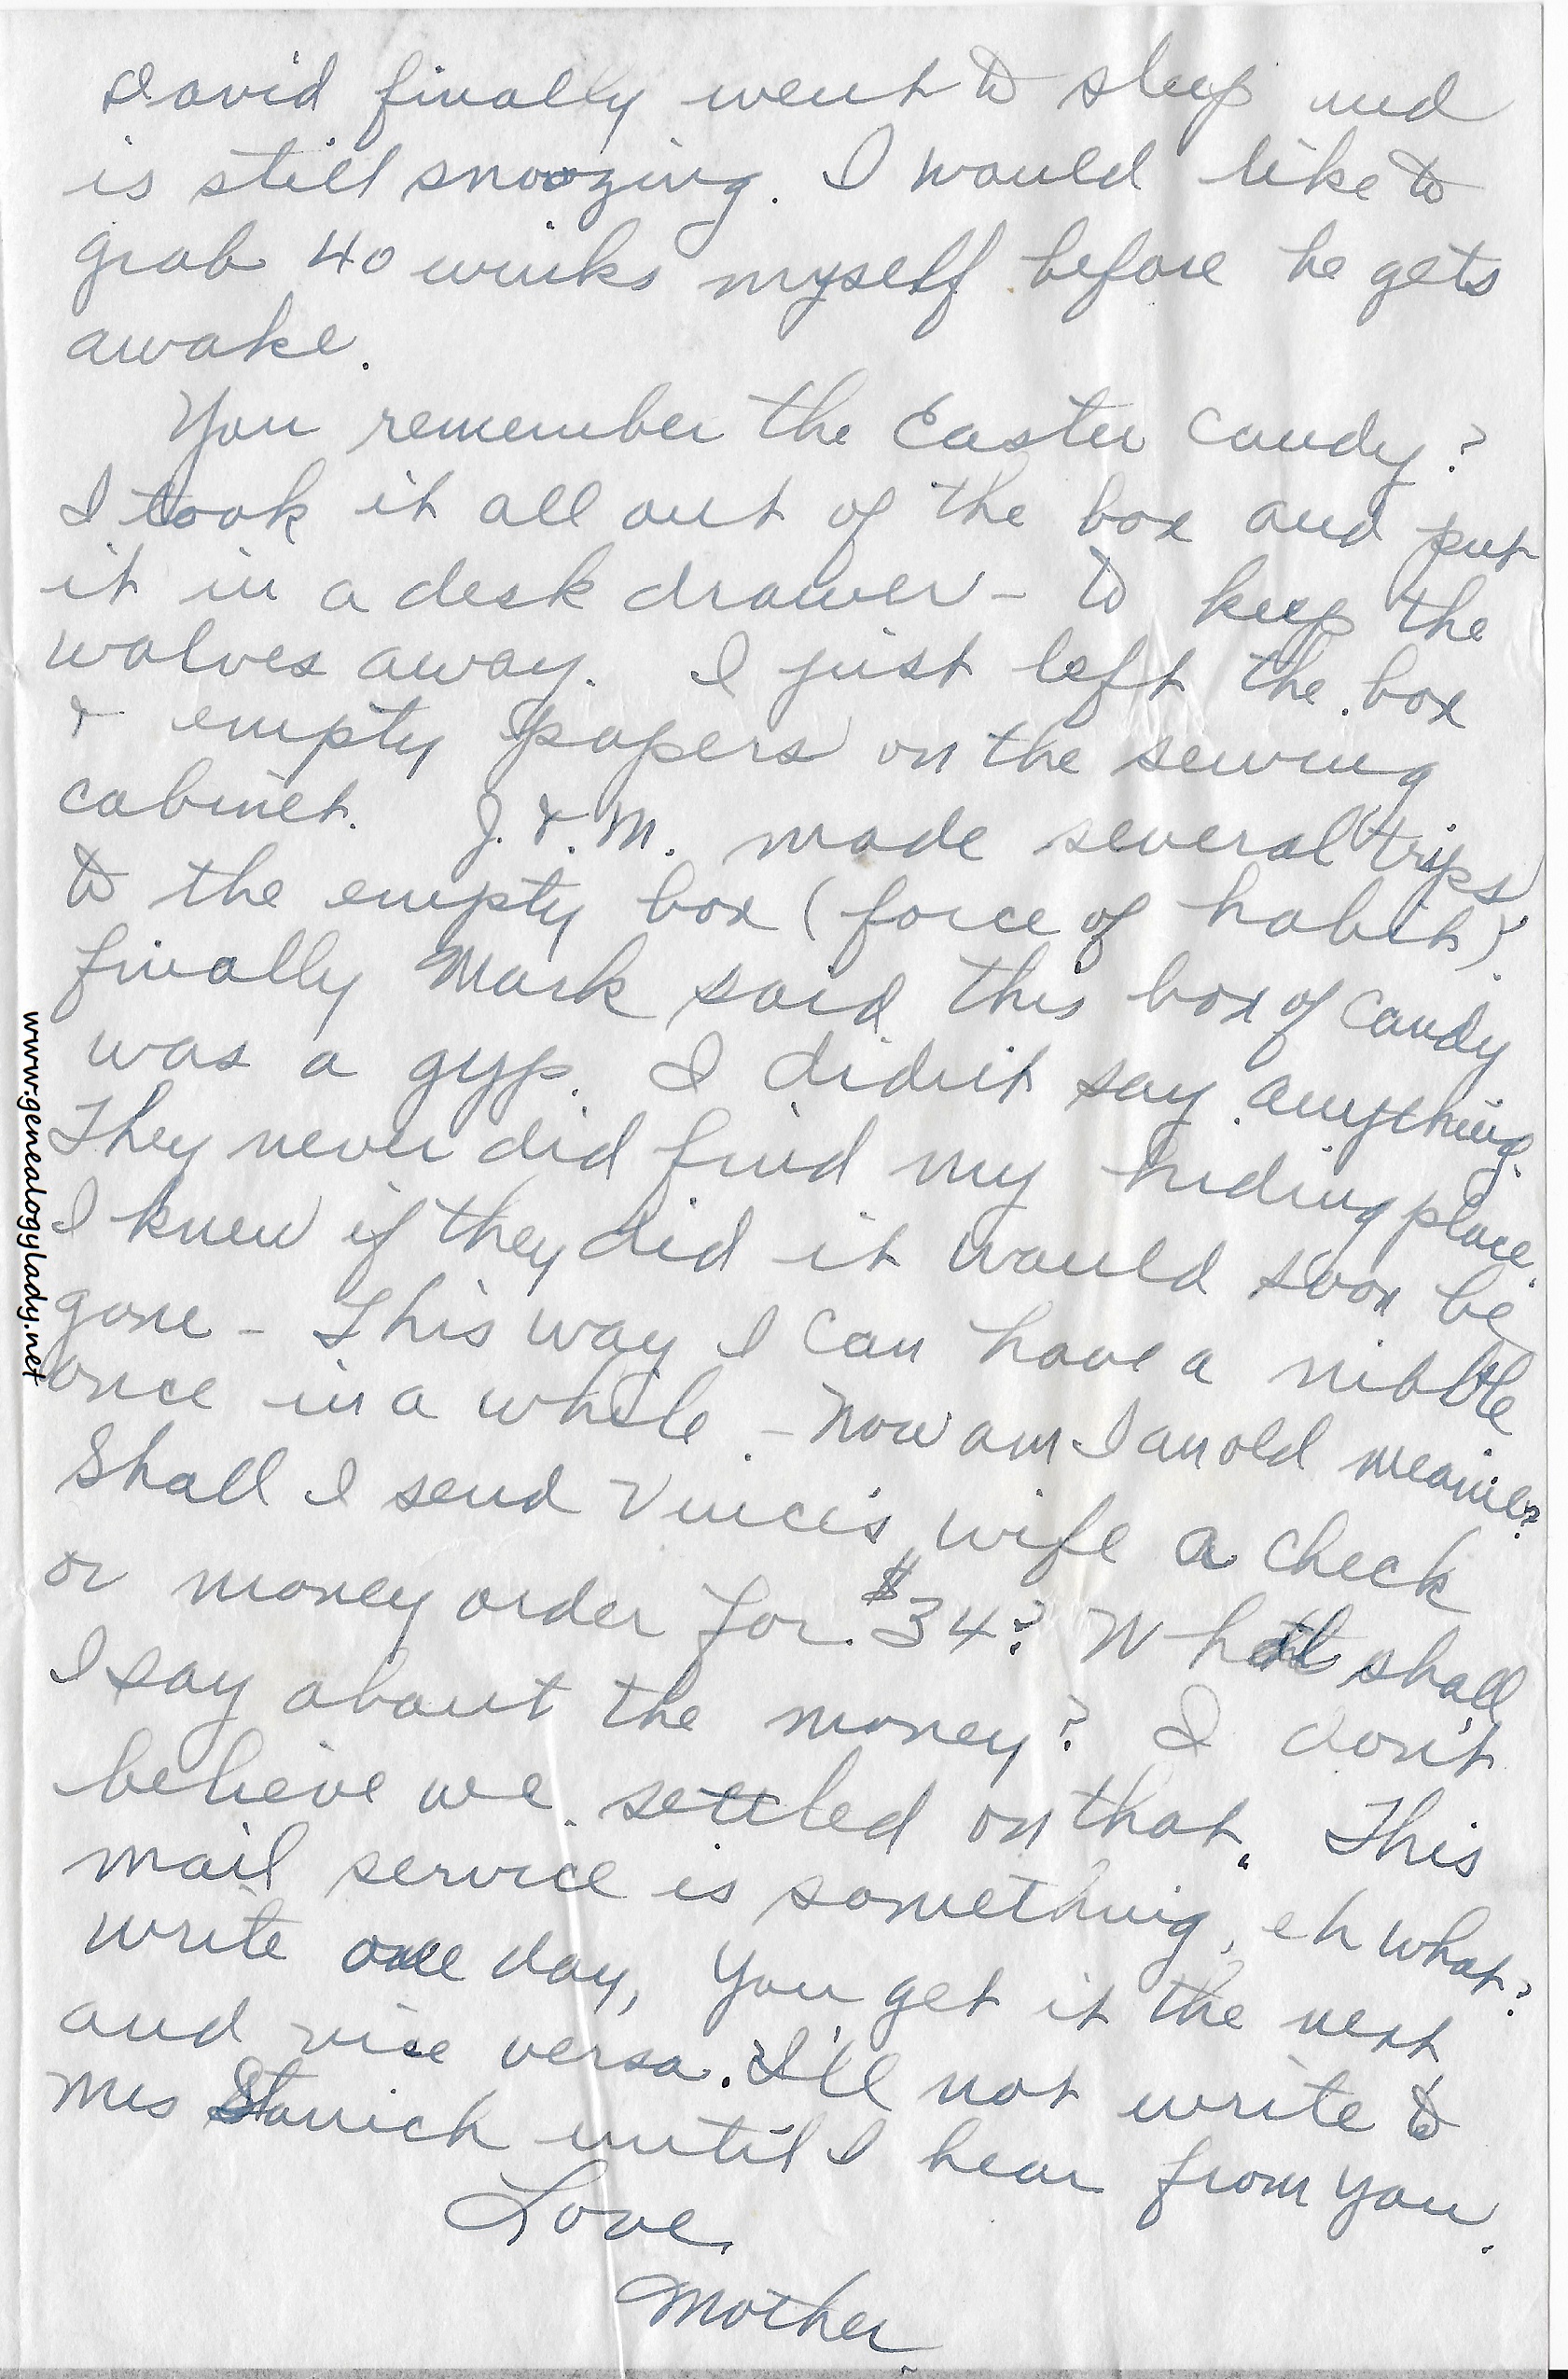 David finally went to sleep and
is still snoozing. I would like to
grab 40 winks myself before he gets
awake.
You remember the Easter candy?
I took it all out of the box and put
it in a desk drawer - to keep the
wolves away. I just left the box
& empty papers on the sewing
cabinet. J. & M. made several trips
to the empty box (force of habit).
finally Mark said this box of candy
was a gyp. I didn't say anything.
They never did find my hiding place.
I knew if they did it would soon be
gone - This way I can have a nibble
once in a while. - Now am I an old meanie?
Shall I send Vince's wife a check
or money order for $34? What shall
I say about the money? I don't
believe we settled on that. This
mail service is something, eh what?
write one day, you get it the next
and vice versa. I'll not write to
Mrs Stanich until I hear from you.
Love,
Mother
www.genealogylady.net